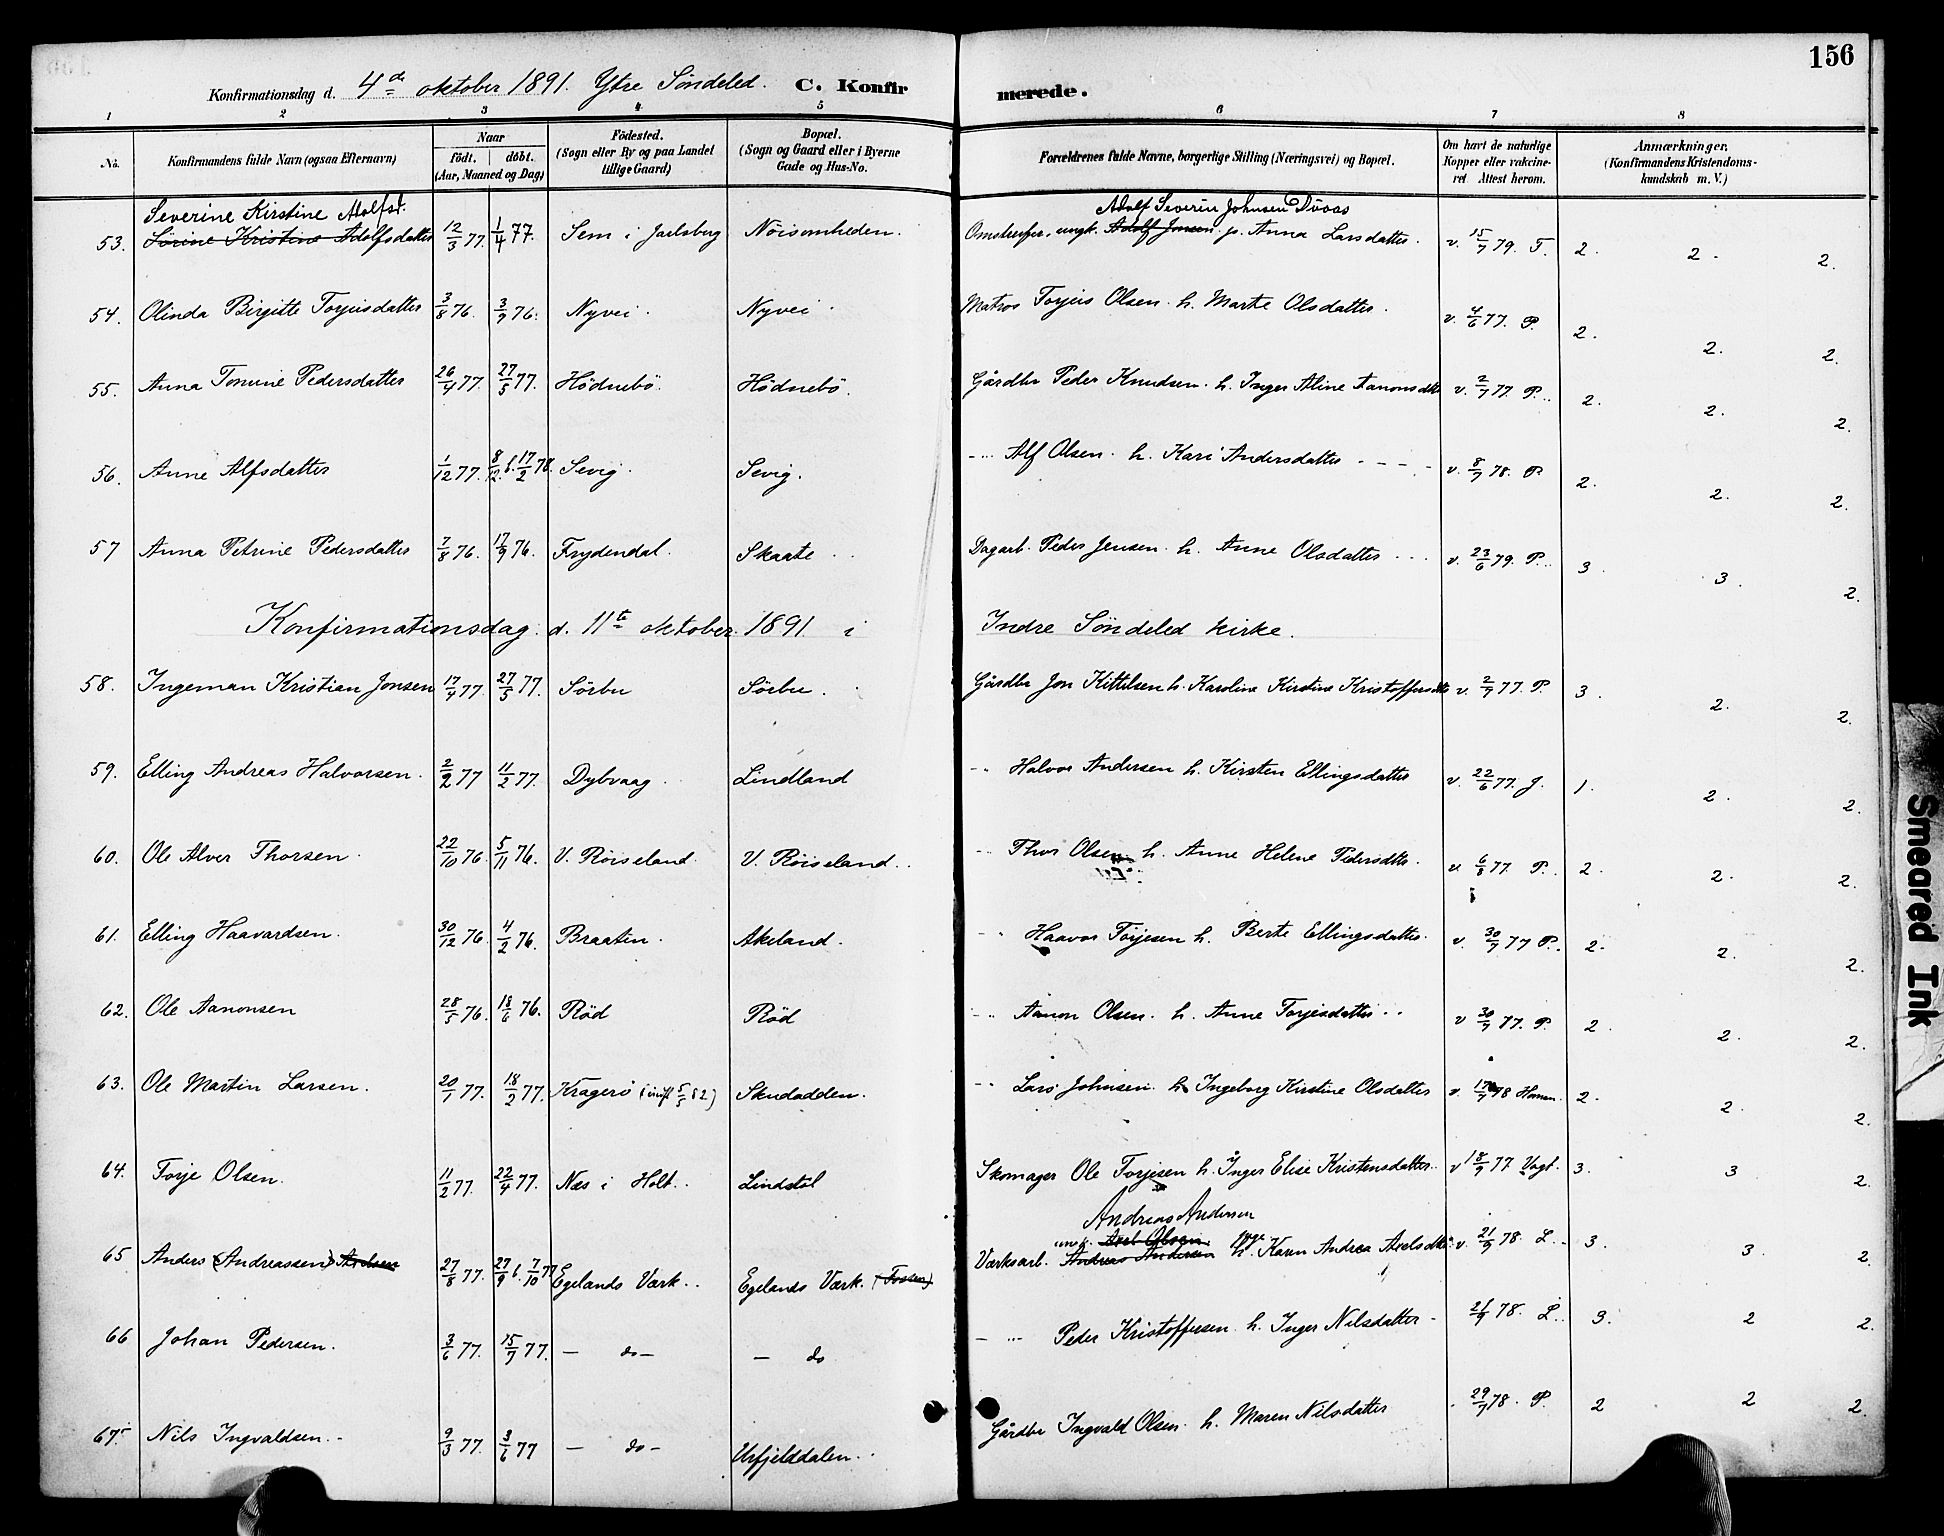 156
Konfirmationsdag d. 4de oktober 1891. Ytre Søndeled. C. Konfirmerede.
1 2 3 4 5 6 7 8
No. Konfirmandens fulde Navn (ogsaa Efternavn) Naar födt. döbt. (Aar, Maaned og Dag) Födested. (Sogn eller By og paa Landet tillige Gaard) Bopæl. (Sogn og Gaard eller i Byerne Gade og Hus-No. Forældrenes fulde Navne, borgerlige Stilling (Næringsvei) og Bopæl. Om havt de naturlige Kopper eller vakcineret Attest herom. Anmærkninger, (Konfirmandens Kristendomskundskab m. V.)
Severine Kirstine Adolfsd. Adolf Severin Johnsen Düvas
53. Sörine Kristine Adolfsdatter 12/3 77. 1/4 77. Sem i Jarlsberg Nöisomheden. ungk. Adolf Jensen p. Anna Larsdatter. v. 15/7 79. T. 2. 2. 2.
54. Olinda Birgitte Torjusdatter 3/8 76. 3/9 76. Nyvei. Nyvei. Matros Torjus Olsen. h. Marte Olsdatter. v. 4/6 77. P. 2. 2. 2.
55. Anna Tomine Pedersdatter 26/4 77. 27/5 77. Hödnebö. Hödnebö. Gårdbr Peder Knudsen. h. Inger Aline Aanonsdtr v. 2/7 77. P. 2. 2. 2.
56. Anne Alfsdatter 1/12 77. 8/12. b. 17/2 78. Sevig. Sevig. - Alf Olsen. h. Kari Andersdatter - - - v. 8/7 78. P. 2. 2. 2.
57 Anna Petrine Pedersdatter 7/8 76. 17/9 76. Frydendal. Skaate Dagarb. Peder Jensen. h. Anne Olsdatter v. 23/6 79. P. 3. 3. 2.
Konfirmationsdag. d. 11te oktober 1891 i Indre Söndeled kirke.
58. Ingeman Kristian Jonsen 17/4 77. 27/5 77. Sörbu Sörbu. Gårdbr Jon Kittelsen h. Karoline Kirstine Kristoffersdtr v. 2/7 77. P. 3. 2. 2.
59. Elling Andreas Halvorsen. 2/2 77 11/2 77. Dybvaag. Lindland - Halvor Andersen h. Kirsten Ellingsdatter v. 22/6 77. J. 1. 2. 2.
60. Ole Alver Thorsen. 22/10 76. 5/11 76. V. Röiseland. V. Röiseland. - Thor Olsen h. Anne Helene Pedersdtr. v. 6/8 77 P. 2. 2. 2.
61. Elling Haavardsen. 30/12 76. 4/2 76. Braaten. Akeland. - Haavor Torjesen h. Berte Ellingsdatter. v. 30/7 77 P. 2. 2. 2.
62. Ole Aanonsen 28/5 76. 18/6 76. Röd Röd - Aanon Olsen. h. Anne Torjesdatter v 30/7 77. P. 2. 2. 2.
63. Ole Martin Larsen. 20/1 77. 18/2 77. Kragerö (innfl 5/5 82) Skudadden. - Lars Johnsen. h Ingeborg Kirstine Olsdatter v. 17/7 78 2. 2. 2.
64. Torje Olsen. 11/2 77. 22/4 77. Næs i Holt. Lindstöl Skomager Ole Torjesen h. Inger Elise Kristensdatter. v 18/9 77 Vogt. 3. 3 2.
Andreas Andersen
ungk. Axel Olsen pige
65 Anders (Andreassen) Axelsen 27/8 77. 27/9 b. 7/10 77 Egelands Værk. Egelands Værk. (Fossen) Værksarb. Andreas Andersen h. Karen Andrea Axelsdtr. v. 21/9 78. L. 3. 3. 2.
66 Johan Pedersen. 3/6 77. 15/7 77. - do - - do - Peder Kristoffersen. h. Inger Nilsdatter - 21/9 78. L. 3. 2 2.
67. Nils Ingvaldsen. - 9/3 77. 3/6 77 - do - Urfjelddalen. Gårdbr Ingvald Olsen. h. Maren Nilsdatter 29/7 78. P. 2 2 2.
Smeared Ink